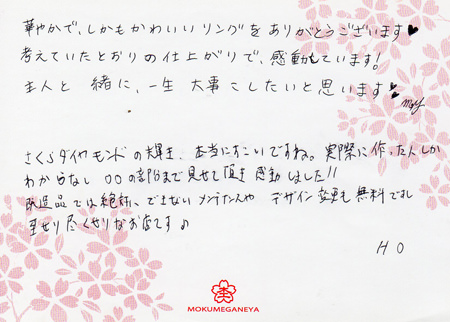 華やかで、しかもかわいいリングをありがとうございます♥
考えていたとおりの仕上がりで、感動しています!
主人と一緒に、一生大事にしたいと思います♥
さくらダイヤモンドの輝き、本当にすごいですね。実際に作った人しか
わからない○○の部分まで見せて頂き感動しました!!
改造品では絶対にできないメンテナンスや デザイン変更も無料ですし
至せり尽くせりなお店です♪
H O
MOKUMEGANEYA